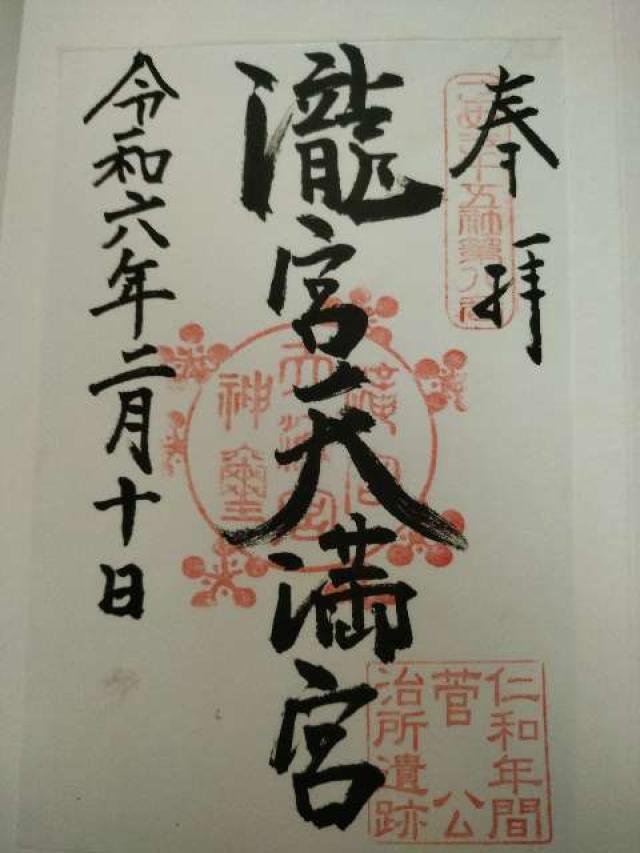 奉拝
瀧宮天満宮
令和六年二月十日
仁和年間
菅公
治所遺跡
瀧宮
天満宮
神璽